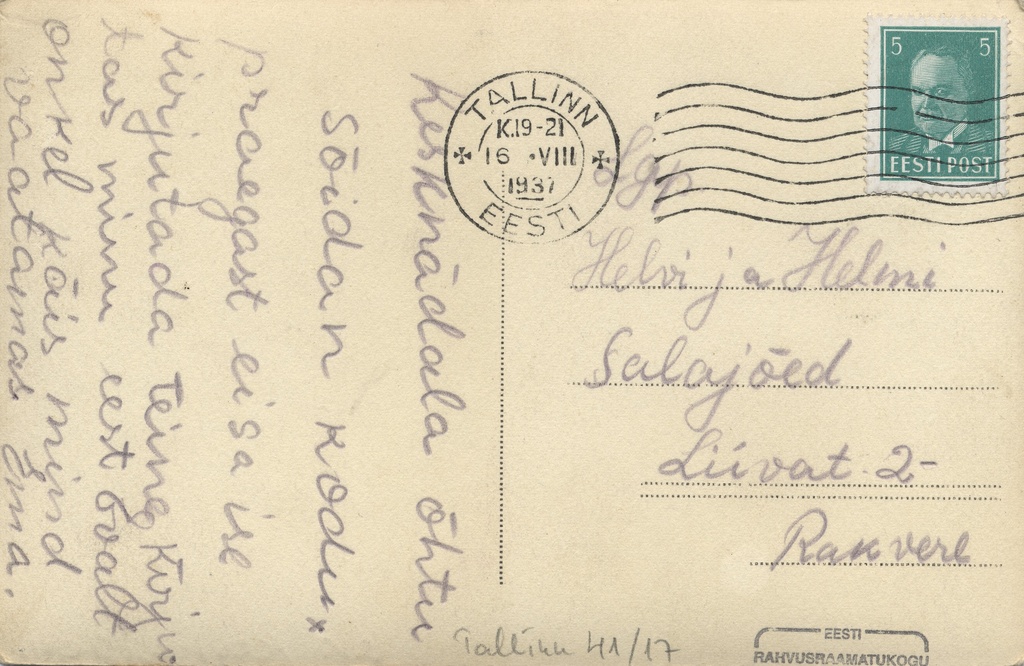 Kesknädala õhtu
sõidan kodu.
praegast ei saa ise
kirjutada teine kirju
tas minu eest Evalt
onkel käis mind
vaatamas Ema.
TALLINN
K.19-21
16 · VIII
1937
EESTI
5 5
EESTI POST
Lgp
Helvi ja Helmi
Salajõed
Liivat. 2-
Rakvere
Tallinn 41/17
EESTI
RAHVUSRAAMATUKOGU